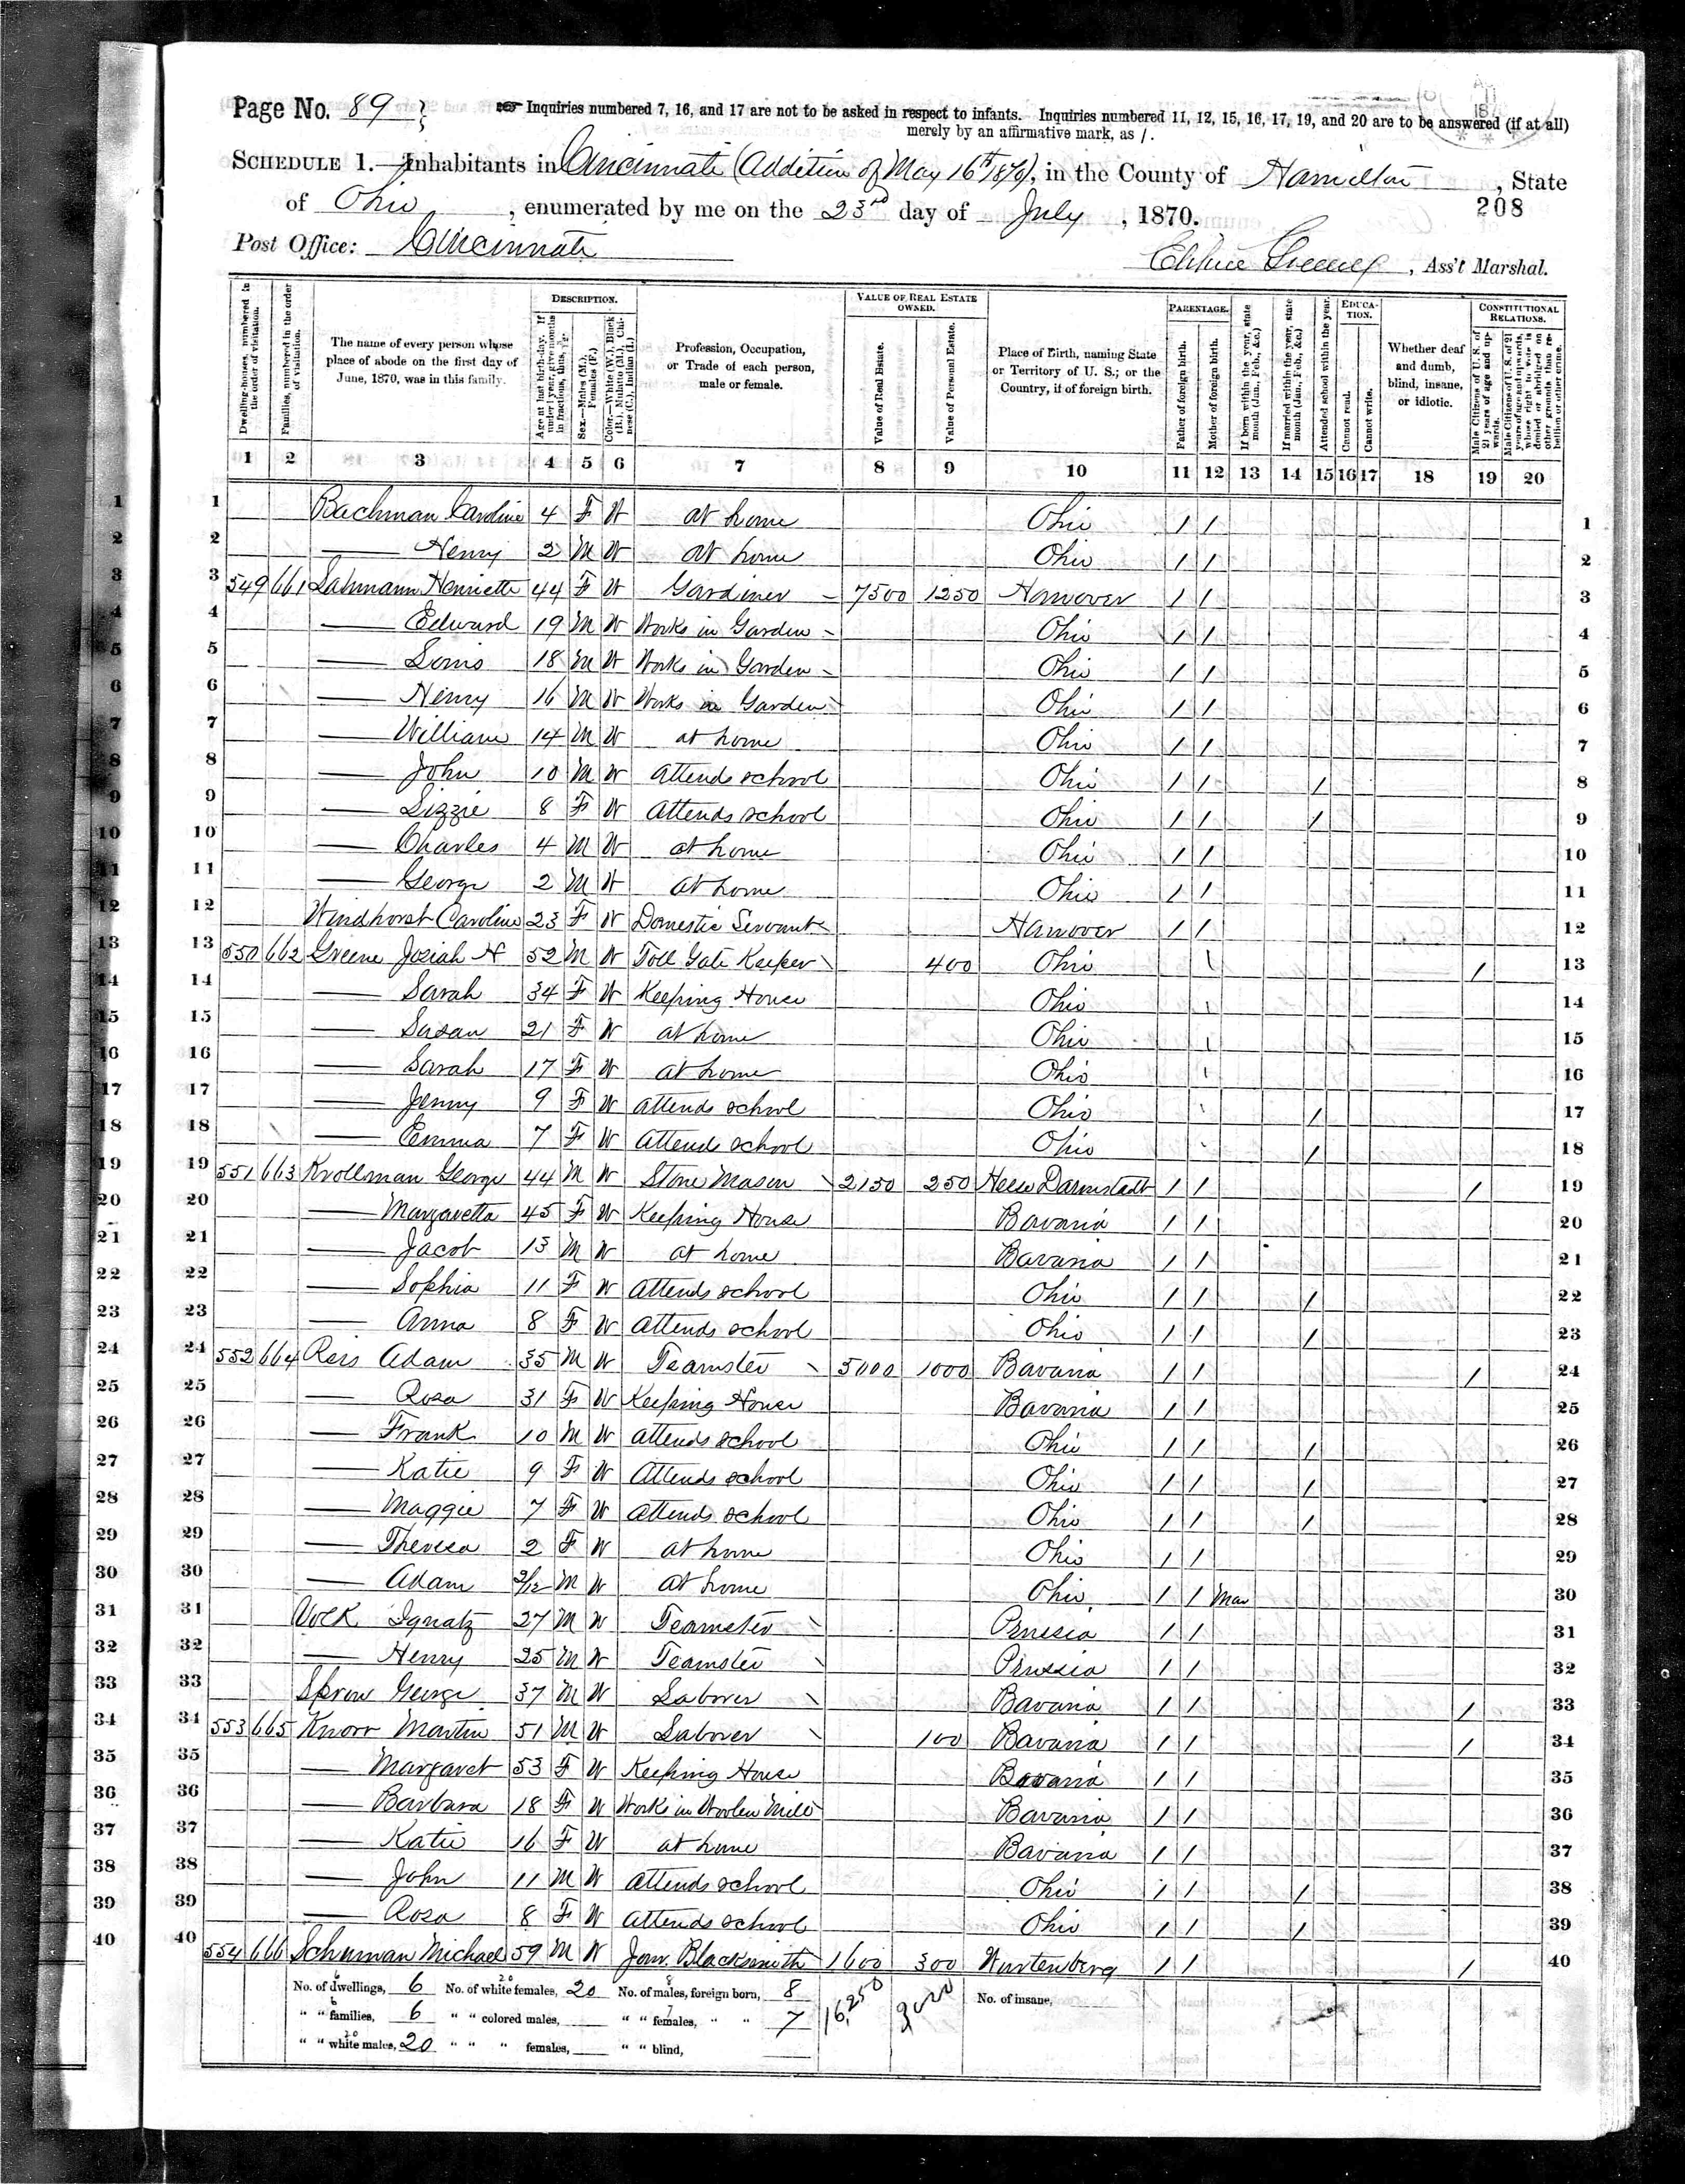 Page No. 89
Inquiries numbered 7, 16, and 17 are not to be asked in respect to infants. Inquiries numbered 11, 12, 15, 16, 17, 19, and 20 are to be answered (if at all)
merely by an affirmative mark, as /.
SCHEDULE 1.—Inhabitants in Cincinnati (Addition of May 16th 1870), in the County of Hamilton, State
of Ohio, enumerated by me on the 23rd day of July, 1870.
208
Post Office: Cincinnati
, Ass't Marshal.
Dwelling-houses, numbered in the order of visitation.
Families, numbered in the order of visitation.
The name of every person whose place of abode on the first day of June, 1870, was in this family.
DESCRIPTION.
Age at last birth-day. If under 1 year, give months in fractions, thus, 3/12.
Sex.—Males (M.), Females (F.)
Color.—White (W.), Black (B.), Mulatto (M.), Chinese (C.), Indian (I.)
Profession, Occupation, or Trade of each person, male or female.
VALUE OF REAL ESTATE OWNED.
Value of Real Estate.
Value of Personal Estate.
Place of Birth, naming State or Territory of U. S.; or the Country, if of foreign birth.
PARENTAGE.
Father of foreign birth.
Mother of foreign birth.
If born within the year, state month (Jan., Feb., &c.)
If married within the year, state month (Jan., Feb., &c.)
Attended school within the year.
EDUCATION.
Cannot read.
Cannot write.
Whether deaf and dumb, blind, insane, or idiotic.
CONSTITUTIONAL RELATIONS.
Male Citizens of U. S. of 21 years of age and upwards.
Male Citizens of U. S. of 21 years of age and upwards, whose right to vote is denied or abridged on other grounds than rebellion or other crime.
1 2 3 4 5 6 7 8 9 10 11 12 13 14 15 16 17 18 19 20
1 Bachman Caroline 4 F W at home Ohio / / 1
2 — Henry 2 M W at home Ohio / / 2
3 549 661 Lahmann Henriette 44 F W Gardiner 7500 1250 Hanover / / 3
4 — Edward 19 M W Works in Garden Ohio / / 4
5 — Louis 18 M W Works in Garden Ohio / / 5
6 — Henry 16 M W Works in Garden Ohio / / 6
7 — William 14 M W at home Ohio / / 7
8 — John 10 M W attends school Ohio / / / 8
9 — Lizzie 8 F W attends school Ohio / / / 9
10 — Charles 4 M W at home Ohio / / 10
11 — George 2 M W at home Ohio / / 11
12 Windhorst Caroline 23 F W Domestic Servant Hanover / / 12
13 550 662 Greene Josiah 52 M W Toll Gate Keeper 400 Ohio / / 13
14 — Sarah 34 F W Keeping House Ohio / 14
15 — Susan 21 F W at home Ohio / 15
16 — Sarah 17 F W at home Ohio / 16
17 — Jenny 9 F W attends school Ohio / / 17
18 — Emma 7 F W attends school Ohio / / 18
19 551 663 Krollman George 44 M W Stone Mason 2150 250 Hesse Darmstadt / / / 19
20 — Margaretta 45 F W Keeping House Bavaria / / 20
21 — Jacob 13 M W at home Bavaria / / 21
22 — Sophia 11 F W attends school Ohio / / / 22
23 — Anna 8 F W attends school Ohio / / / 23
24 552 664 Reis Adam 35 M W Teamster 5000 1000 Bavaria / / / 24
25 — Rosa 31 F W Keeping House Bavaria / / 25
26 — Frank 10 M W attends school Ohio / / / 26
27 — Katie 9 F W attends school Ohio / / / 27
28 — Maggie 7 F W attends school Ohio / / / 28
29 — Theresa 2 F W at home Ohio / / 29
30 — Adam 2/12 M W at home Ohio / / Mar 30
31 Volk Ignatz 27 M W Teamster Prussia / / 31
32 — Henry 25 M W Teamster Prussia / / 32
33 George 37 M W Laborer Bavaria / / / 33
34 553 665 Knorr Martin 51 M W Laborer 100 Bavaria / / / 34
35 — Margaret 53 F W Keeping House Bavaria / / 35
36 — Barbara 18 F W Works in Woolen Mills Bavaria / / 36
37 — Katie 16 F W at home Bavaria / / 37
38 — John 11 M W attends school Ohio / / / 38
39 — Rosa 8 F W attends school Ohio / / / 39
40 554 666 Schuman Michael 59 M W Jour. Blacksmith 1600 300 Wurtenberg / / / 40
No. of dwellings, 6 No. of white females, 20 No. of males, foreign born, 8 16,250 No. of insane,
" " families, 6 " " colored males, " " females, " " 7
" " white males, 20 " " " females, " " blind,